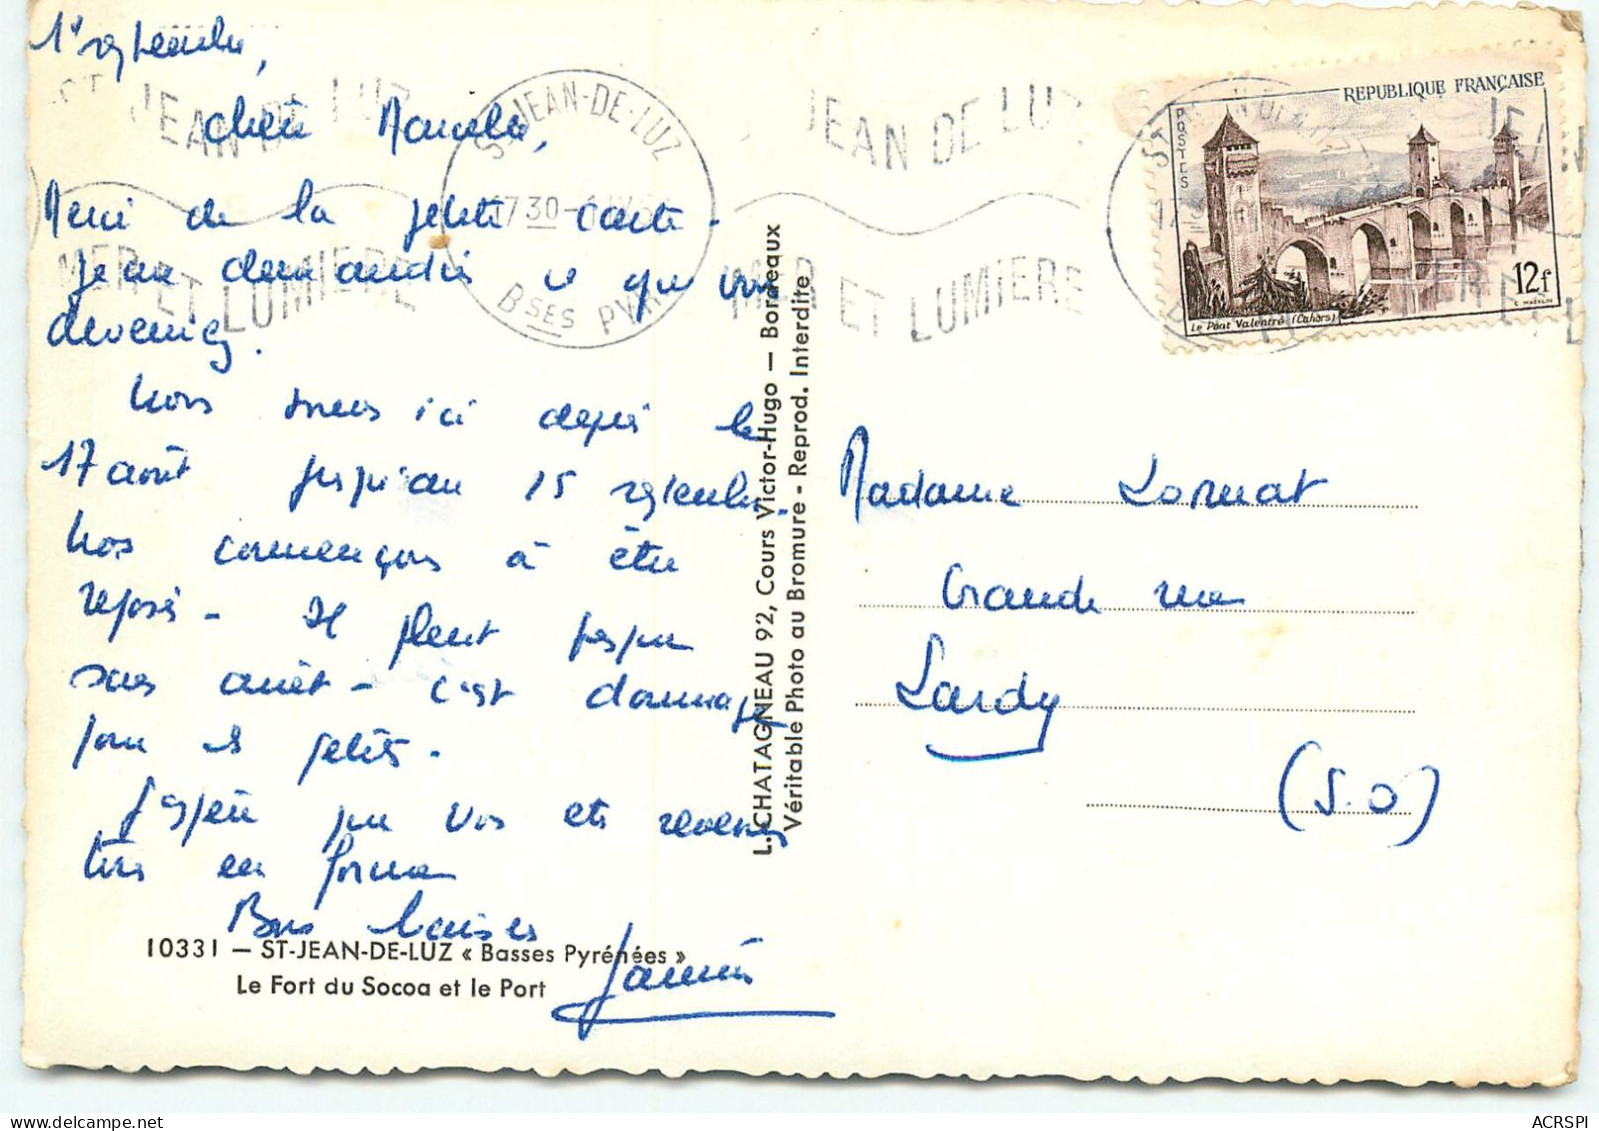 1er septembre,
Chère Marcelle,
Merci de la petite carte.
Je me demandais ce que vous
deveniez.
Nous sommes ici depuis le
17 août jusqu'au 15 septembre.
Nos commençons à être
reposés - Il pleut presque
sans arrêt - c'est dommage
pour les petits -
J'espère que vos ets
tirés en forme
Bons baisers
10331 — ST-JEAN-DE-LUZ « Basses Pyrénées »
Le Fort du Socoa et le Port
L. CHATAGNEAU 92, Cours Victor-Hugo — Bordeaux
Véritable Photo au Bromure - Reprod. Interdite
ST JEAN DE LUZ
MER ET LUMIERE
ST-JEAN-DE-LUZ
17 30
Bses PYR
JEAN DE LUZ
MER ET LUMIERE
REPUBLIQUE FRANÇAISE
POSTES
12f
Le Pont Valentré (Cahors)
Madame Lormat
Grande rue
Lardy
(S.O)
ACRSPI